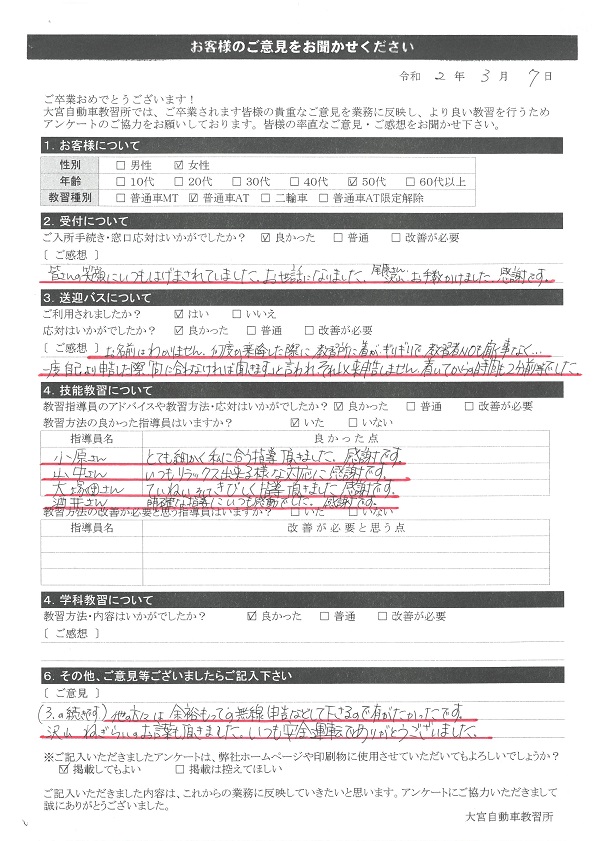 お客様のご意見をお聞かせください
令和 2 年 3 月 7 日
ご卒業おめでとうございます！
大宮自動車教習所では、ご卒業されます皆様の貴重なご意見を業務に反映し、より良い教習を行うため
アンケートのご協力をお願いしております。皆様の率直なご意見・ご感想をお聞かせ下さい。
1. お客様について
性別 □ 男性 ☑ 女性
年齢 □ 10代 □ 20代 □ 30代 □ 40代 ☑ 50代 □ 60代以上
教習種別 □ 普通車MT ☑ 普通車AT □ 二輪車 □ 普通車AT限定解除
2. 受付について
ご入所手続き・窓口応対はいかがでしたか？ ☑ 良かった □ 普通 □ 改善が必要
［ ご感想 ］
皆さんの笑顔にいつもはげまされていました。お世話になりました。尾原さん お手数かけました。感謝です。
3. 送迎バスについて
ご利用されましたか？ ☑ はい □ いいえ
応対はいかがでしたか？ ☑ 良かった □ 普通 □ 改善が必要
［ ご感想 ］ お名前はわかりません。何度か乗輪した際に教習所に着がぎりぎりで教習者NOを聞く事なく…
一度自己より申告した際、間に合わなければ聞きますと言われ それ以来申告しません。着いてからの時間は2分前等でした。
4. 技能教習について
教習指導員のアドバイスや教習方法・応対はいかがでしたか？ ☑ 良かった □ 普通 □ 改善が必要
教習方法の良かった指導員はいますか？ ☑ いた □ いない
指導員名 良かった点
小原さん とても細かく私に合う指導頂きました。感謝です。
山中さん いつもリラックス出来る様な対応に感謝です。
大場田さん ていねいかつきびしく指導頂きました 感謝です。
酒井さん 明確な指導にいつも感動でした。感謝です。
教習方法の改善が必要と思う指導員はいますか？ □ いた □ いない
指導員名 改善が必要と思う点
4. 学科教習について
教習方法・内容はいかがでしたか？ ☑ 良かった □ 普通 □ 改善が必要
［ ご感想 ］
6. その他、ご意見等ございましたらご記入下さい
［ ご意見 ］
(3.の続きです) 他の方には 余裕もっての無線申告などして下さるので有がたかったです。
沢山 ねぎらいのお言葉も頂きました。いつも安全運転でありがとうございました。
※ご記入いただきましたアンケートは、弊社ホームページや印刷物に使用させていただいてもよろしいでしょうか？
☑ 掲載してもよい □ 掲載は控えてほしい
ご記入いただきました内容は、これからの業務に反映していきたいと思います。アンケートにご協力いただきまして
誠にありがとうございました。
大宮自動車教習所